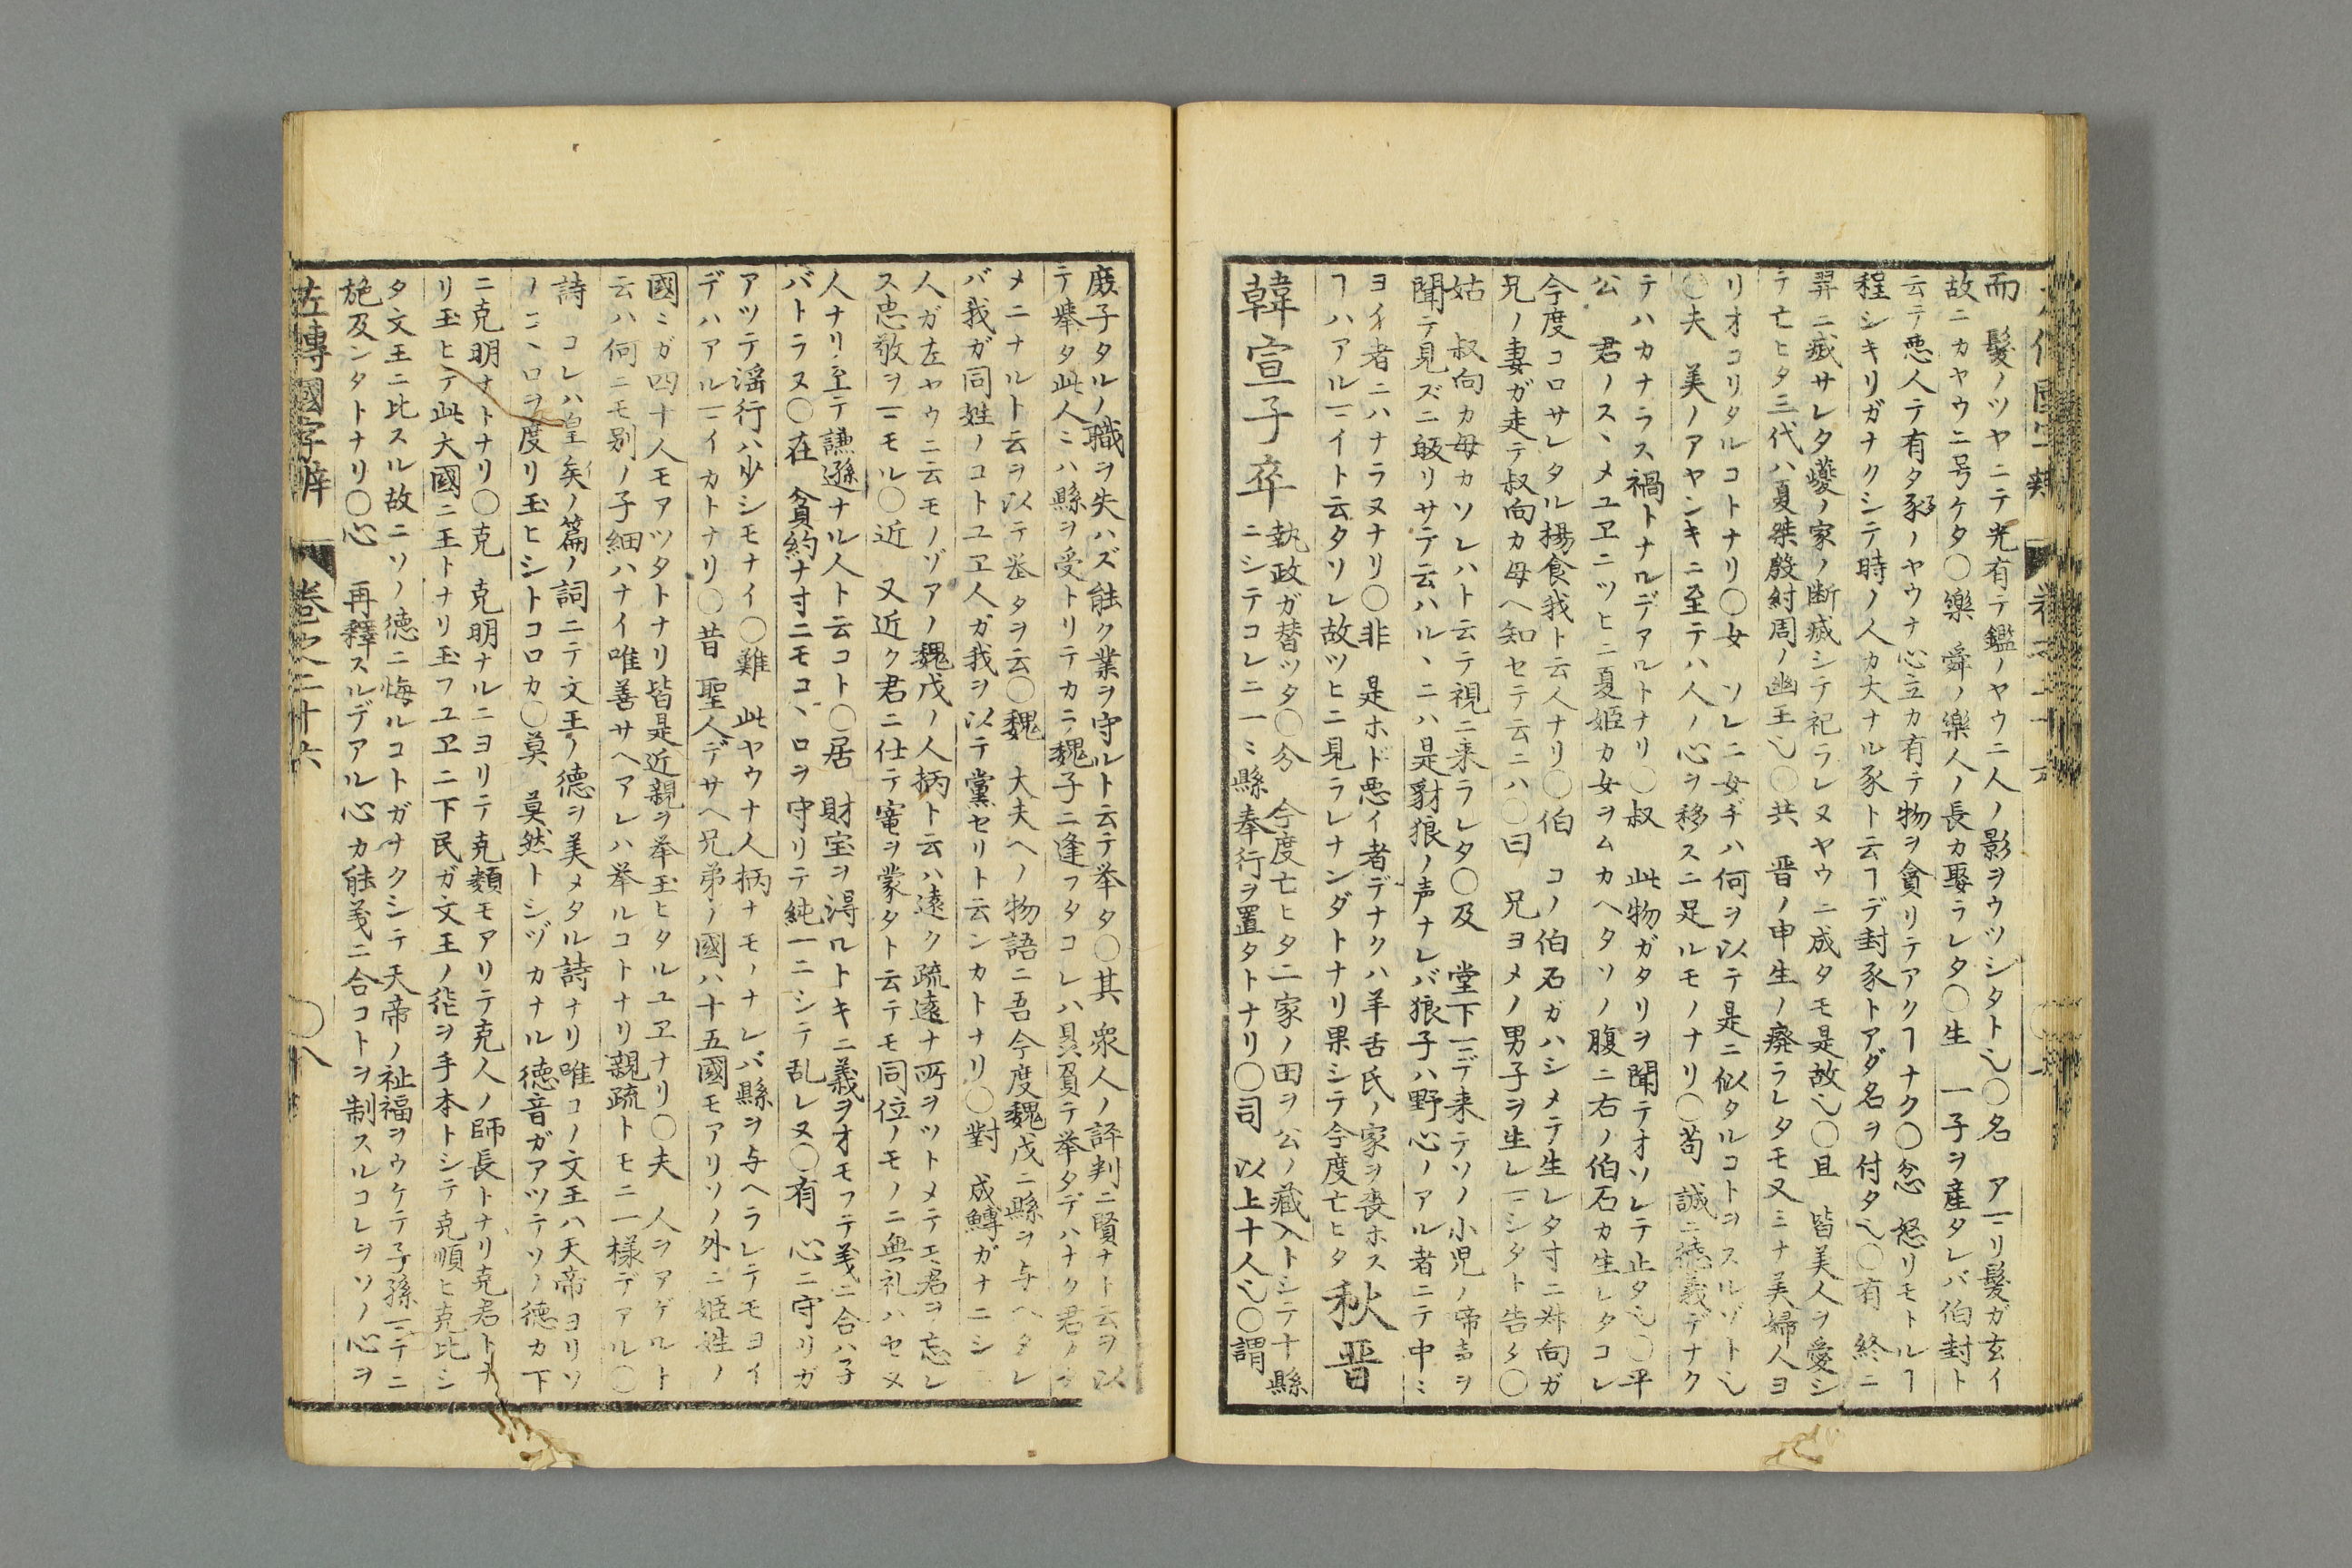 而　髮ノツヤニテ光有テ鑑ノヤウニ人ノ影ヲウツシタト也〇名　アマリ髮ガ玄イ
故ニカヤウニ号ケタ〇樂　舜ノ樂人ノ長カ娶ラレタ〇生　一子ヲ産タレバ伯封ト
云テ悪人テ有タ豕ノヤウナ心立カ有テ物ヲ貪リテアクヿナク〇忿　怒リモトルヿ
程シキリガナクシテ時ノ人カ大ナル豕ト云ヿデ封豕トアダ名ヲ付タ也〇有　終ニ
羿ニ滅サレタ夔ノ家ノ断滅シテ祀ラレヌヤウニ成タモ是故也〇且　皆美人ヲ愛シ
テ亡ヒタ三代ハ夏桀殷紂周ノ幽王也〇共　晋ノ申生ノ廢ラレタモ又ミナ美婦人ヨ
リオコリタルコトナリ〇女　ソレニ女ヂハ何ヲ以テ是ニ似タルコトヲスルゾト也
〇夫　美ノアヤシキニ至テハ人ノ心ヲ移スニ足ルモノナリ〇苟　誠ニ德義デナク
テハカナラス禍トナルデアルトナリ〇叔　此物ガタリヲ聞テオソレテ止タ也〇平
公　君ノスヽメユヱニツヒニ夏姫カ女ヲムカヘタソノ腹ニ右ノ伯石カ生レタコレ
今度コロサレタル楊食我ト云人ナリ〇伯　コノ伯石ガハシメテ生レタ寸ニ叔向ガ
兄ノ妻ガ走テ叔向カ母ヘ知セテ云ニハ〇曰　兄ヨメノ男子ヲ生レマシタト告タ〇
姑　叔向カ母カソレハト云テ視ニ来ラレタ〇及　堂下マデ来テソノ小児ノ啼声ヲ
聞テ見ズニ皈リサテ云ハルヽニハ是豺狼ノ声ナレバ狼子ハ野心ノアル者ニテ中ミ
ヨイ者ニハナラヌナリ〇非　是ホド悪イ者デナクハ羊舌氏ノ家ヲ喪ホス
ヿハアルマイト云タリレ故ツヒニ見ラレナンダトナリ果シテ今度亡ヒタ　秋晋
韓宣子卒　執政ガ替ツタ〇分　今度亡ヒタ二家ノ田ヲ公ノ藏入トシテ十縣
ニシテコレニ一ミ縣奉行ヲ置タトナリ〇司　以上十人也〇謂
庻子タルノ職ヲ失ハズ能ク業ヲ守ルト云テ挙タ〇其　衆人ノ評判ニ賢ナト云ヲ以
テ擧タ此人ミハ縣ヲ受トリテカラ魏子ニ逢フタコレハ貝負テ挙タデハナク君ノタ
メニナルト云ヲ以テ挙タヲ云〇魏　大夫ヘノ物語ニ吾今度魏戊ニ縣ヲ与ヘタレ
バ我ガ同姓ノコトユヱ人ガ我ヲ以テ黨セリト云ンカトナリ〇對　成鱄ガナニシ
人ガ左ヤウニ云モノゾアノ魏戊ノ人柄ト云ハ遠ク疏遠ナ所ヲツトメテモ君ヲ忘レ
ス忠敬ヲマモル〇近　又近ク君ニ仕テ寵ヲ蒙タト云テモ同位ノモノニ無礼ハセヌ
人ナリ至テ謙遜ナル人ト云コト〇居　財宝ヲ得ルトキニ義ヲオモフテ義ニ合ハ子
バトラヌ〇在　貧約ナ寸ニモコヽロヲ守リテ純一ニシテ乱レヌ〇有　心ニ守リガ
アツテ滛行ハ少シモナイ〇雖　此ヤウナ人柄ナモノナレバ縣ヲ与ヘラレテモヨイ
デハアルマイカトナリ〇昔　聖人デサヘ兄弟ノ國ハ十五國モアリソノ外ニ姫姓ノ
國ミガ四十人モアツタトナリ皆是近親ヲ挙玉ヒタルユヱナリ〇夫　人ヲアゲルト
云ハ何ニモ別ノ子細ハナイ唯善サヘアレハ挙ルコトナリ親疏トモニ一様デアル〇
詩　コレハ皇矣ノ篇ノ詞ニテ文王ノ德ヲ美メタル詩ナリ唯コノ文王ハ天帝ヨリソ
ノコヽロヲ度リ玉ヒシトコロカ〇莫　莫然トシヅカナル德音ガアツテソノ德カ下
ニ克明ナトナリ〇克　克明ナルニヨリテ克類モアリテ克人ノ師長トナリ克君トナ
リ玉ヒテ此大國ニ王トナリ玉フユヱニ下民ガ文王ノ徳ヲ手本トシテ克順ヒ克比シ
タ文王ニ比スル故ニソノ徳ニ悔ルコトガナクシテ天帝ノ祉福ヲウケテ子孫マテニ
施及ンタトナリ〇心　再釋スルデアル心カ能義ニ合コトヲ制スルコレヲソノ心ヲ
左傳國字辯　卷之二十六　〇八